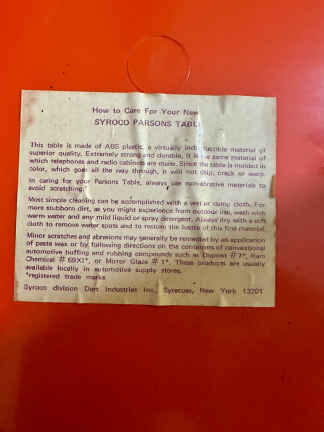 How to Care For Your New
SYROCO PARSONS TABLE
This table is made of ABS plastic, a virtually indestructible material of
superior quality. Extremely strong and durable, it is the same material of
which telephones and radio cabinets are made. Since the table is molded in
color, which goes all the way through, it will not chip, crack or warp.
In caring for your Parsons Table, always use non-abrasive materials to
avoid scratching.
Most simple cleaning can be accomplished with a wet or damp cloth. For
more stubborn dirt, as you might experience from outdoor use, wash with
warm water and any mild liquid or spray detergent. Always dry with a soft
cloth to remove water spots and to restore the lustre of this fine material.
Minor scratches and abrasions may generally be remedied by an application
of paste wax or by following directions on the containers of conventional
automotive buffing and rubbing compounds such as Dupont # 7*, Ram
Chemical # 69X1*, or Mirror Glaze # 1*. These products are usually
available locally in automotive supply stores.
*registered trade marks
Syroco division Dart Industries Inc., Syracuse, New York 13201